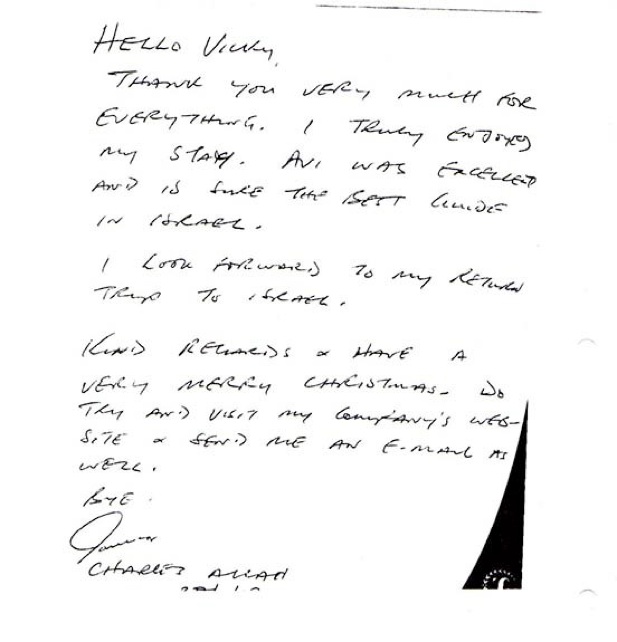 HELLO VICKY,
THANK YOU VERY MUCH FOR
EVERYTHING. I TRULY ENJOYED
MY STAY. AVI WAS EXCELLENT
AND IS SURE THE BEST GUIDE
IN ISRAEL.
I LOOK FORWARD TO MY RETURN
TRIP TO ISRAEL.
KIND REGARDS & HAVE A
VERY MERRY CHRISTMAS. DO
TRY AND VISIT MY COMPANY'S WEB-
SITE & SEND ME AN E-MAIL AS
WELL.
BYE.
CHARLES